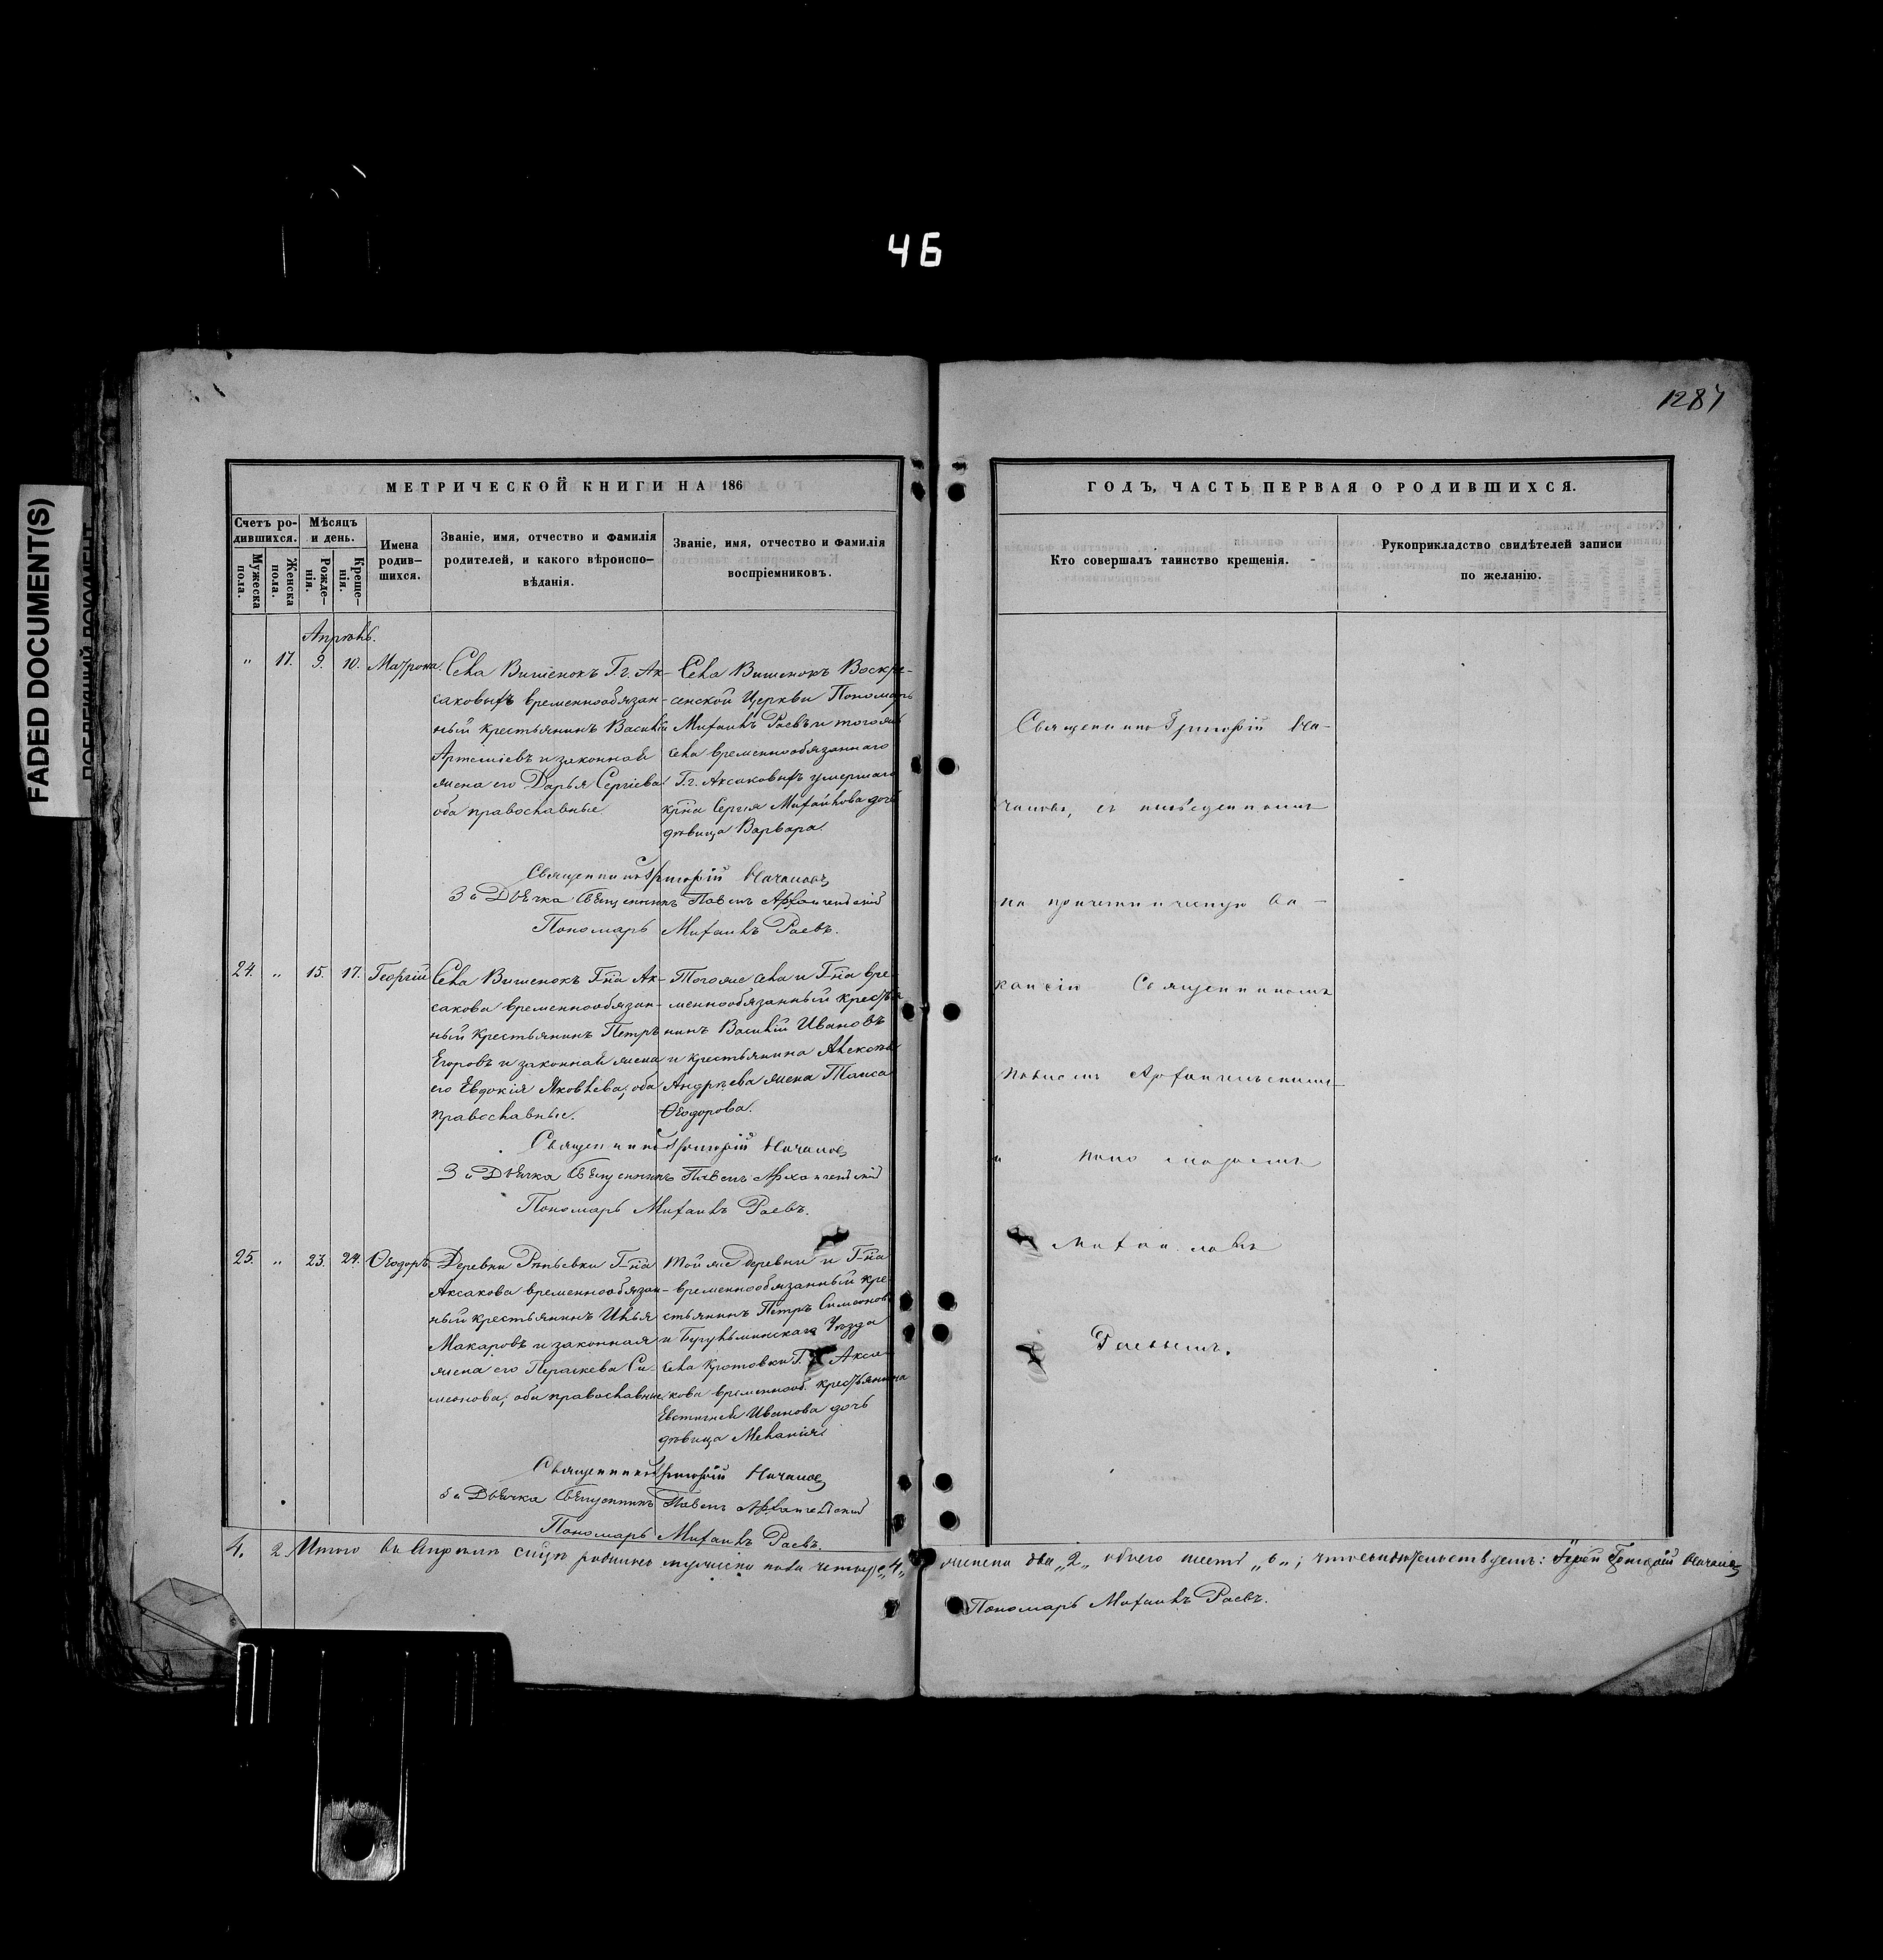 46
1287
FADED DOCUMENT(S)
МЕТРИЧЕСКОЙ КНИГИ НА 186
Счетъ ро-
дившихся.
Мужеска
пола.
Женска
пола.
Мѣсяцъ
и день.
Рожде-
нія.
Креще-
нія.
Имена
родив-
шихся.
Званіе, имя, отчество и фамилія
родителей, и какого вѣроиспо-
вѣданія.
Званіе, имя, отчество и фамилія
воспріемниковъ.
Апрѣль.
" 17. 9. 10. Матрона.
Села Вишенокъ Г.г. Ак-
саковыхъ временнообязан-
ный крестьянинъ Василій
Артеміевъ и законная
жена его Дарья Сергіева
оба православные
Села Вишенокъ Воскре-
сенской Церкви Пономарь
Михаилъ Раевъ и того же
села временнообязаннаго
Г.г. Аксаковыхъ умершаго
кр̃на Сергѣя Михайлова дочь
дѣвица Варвара.
Священникъ Григорій Началовъ
За Дьячка Священникъ Павелъ Архангельскій
Пономарь Михаилъ Раевъ.
24. " 15. 17. Георгій
Села Вишенокъ Г-на Ак-
сакова временнообязан-
ный крестьянинъ Петръ
Егоровъ и законная жена
его Евдокія Яковлева, оба
православные.
Того же села и Г-на вре-
меннообязанный крестья-
нинъ Василій Ивановъ
и крестьянина Алексѣя
Андрѣева жена Таиса
Ѳеодорова.
Священникъ Григорій Началовъ
За Дьячка Священникъ Павелъ Архангельскій
Пономарь Михаилъ Раевъ.
25. " 23. 24. Ѳеодоръ.
Деревни Рѣпьевки Г-на
Аксакова временнообязан-
ный крестьянинъ Илья
Макаровъ и законная
жена его Параскева Си-
меонова, оба православные
Той же деревни и Г-на
временнообязанный кре-
стьянинъ Петръ Симеоновъ
и Бугульминскаго Уѣзда
села Кротовки Г. Акса-
кова временнооб. крестьянина
Евстигнѣя Иванова дочь
дѣвица Меланія
Священникъ Григорій Началовъ
За Дьячка Священникъ Павелъ Архангельскій
Пономарь Михаилъ Раевъ.
4. 2. Итого въ Апрѣлѣ родилось мужеска пола четыре „4„
ГОДЪ, ЧАСТЬ ПЕРВАЯ О РОДИВШИХСЯ.
Кто совершалъ таинство крещенія.
Рукоприкладство свидѣтелей записи
по желанію.
Священникъ Григорій На-
чаловъ, съ
на причетническую ва-
кансію Священникомъ
Павломъ Архангельскимъ
и Пономаремъ
Михаиломъ
Раевымъ.
женска два „2„ обоего шесть „6„; что свидѣтельствуетъ: Іерей Григорій Началовъ
Пономарь Михаилъ Раевъ.